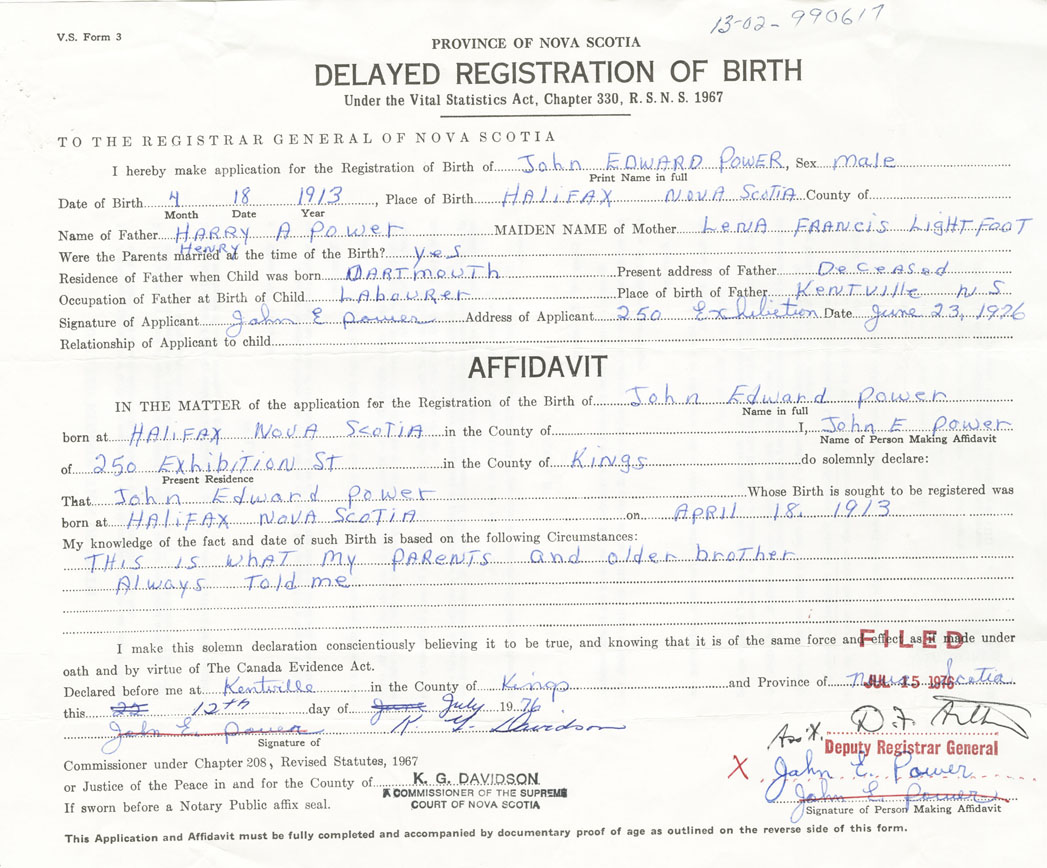 13-02-990617
V.S. Form 3
PROVINCE OF NOVA SCOTIA
DELAYED REGISTRATION OF BIRTH
Under the Vital Statistics Act, Chapter 330, R. S. N. S. 1967
TO THE REGISTRAR GENERAL OF NOVA SCOTIA
I hereby make application for the Registration of Birth of John EDWARD POWER, Sex male
Print Name in full
Date of Birth 4 18 1913, Place of Birth HALIFAX NOVA SCOTIA County of
Month Date Year
Name of Father HARRY A POWER MAIDEN NAME of Mother LENA FRANCIS LIGHTFOOT
HENRY
Were the Parents married at the time of the Birth? yes
Residence of Father when Child was born DARTMOUTH Present address of Father Deceased
Occupation of Father at Birth of Child LABOURER Place of birth of Father KENTVILLE N S
Signature of Applicant John E Power Address of Applicant 250 Exhibietion Date June 23, 1976
Relationship of Applicant to child
AFFIDAVIT
IN THE MATTER of the application for the Registration of the Birth of John Edward Power
Name in full
born at HALIFAX NOVA SCOTIA in the County of I, John E Power
Name of Person Making Affidavit
of 250 EXHIBITION ST in the County of Kings do solemnly declare:
Present Residence
That John Edward Power Whose Birth is sought to be registered was
born at HALIFAX NOVA SCOTIA on APRIL 18, 1913
My knowledge of the fact and date of such Birth is based on the following Circumstances:
THIS is what my PARENTS and older brother
Always Told me
I make this solemn declaration conscientiously believing it to be true, and knowing that it is of the same force and effect as if made under
FILED
oath and by virtue of The Canada Evidence Act.
Declared before me at Kentville in the County of Kings and Province of Nova Scotia
JUL 15 1976
this 23 12th day of June July 1976
John E. Power K. G. Davidson
Signature of
Ass't.
Deputy Registrar General
Commissioner under Chapter 208, Revised Statutes, 1967
X John E. Power
or Justice of the Peace in and for the County of K. G. DAVIDSON
A COMMISSIONER OF THE SUPREME
John E. Power
If sworn before a Notary Public affix seal. COURT OF NOVA SCOTIA
Signature of Person Making Affidavit
This Application and Affidavit must be fully completed and accompanied by documentary proof of age as outlined on the reverse side of this form.